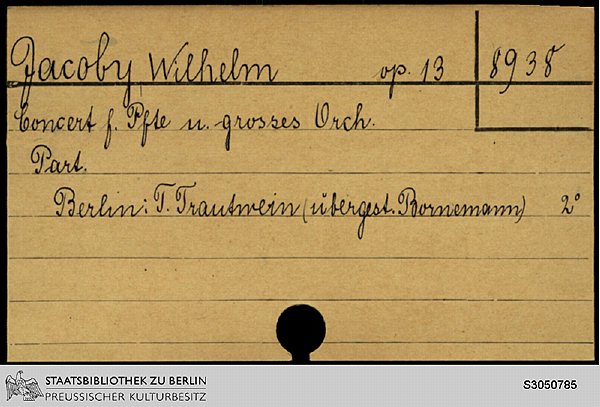 Jacoby, Wilhelm op. 13 8938
Concert f. Pfte u. grosses Orch.
Part.
Berlin: T. Trautwein (übergest. Bornemann) 2°
STAATSBIBLIOTHEK ZU BERLIN
PREUSSISCHER KULTURBESITZ
S3050785